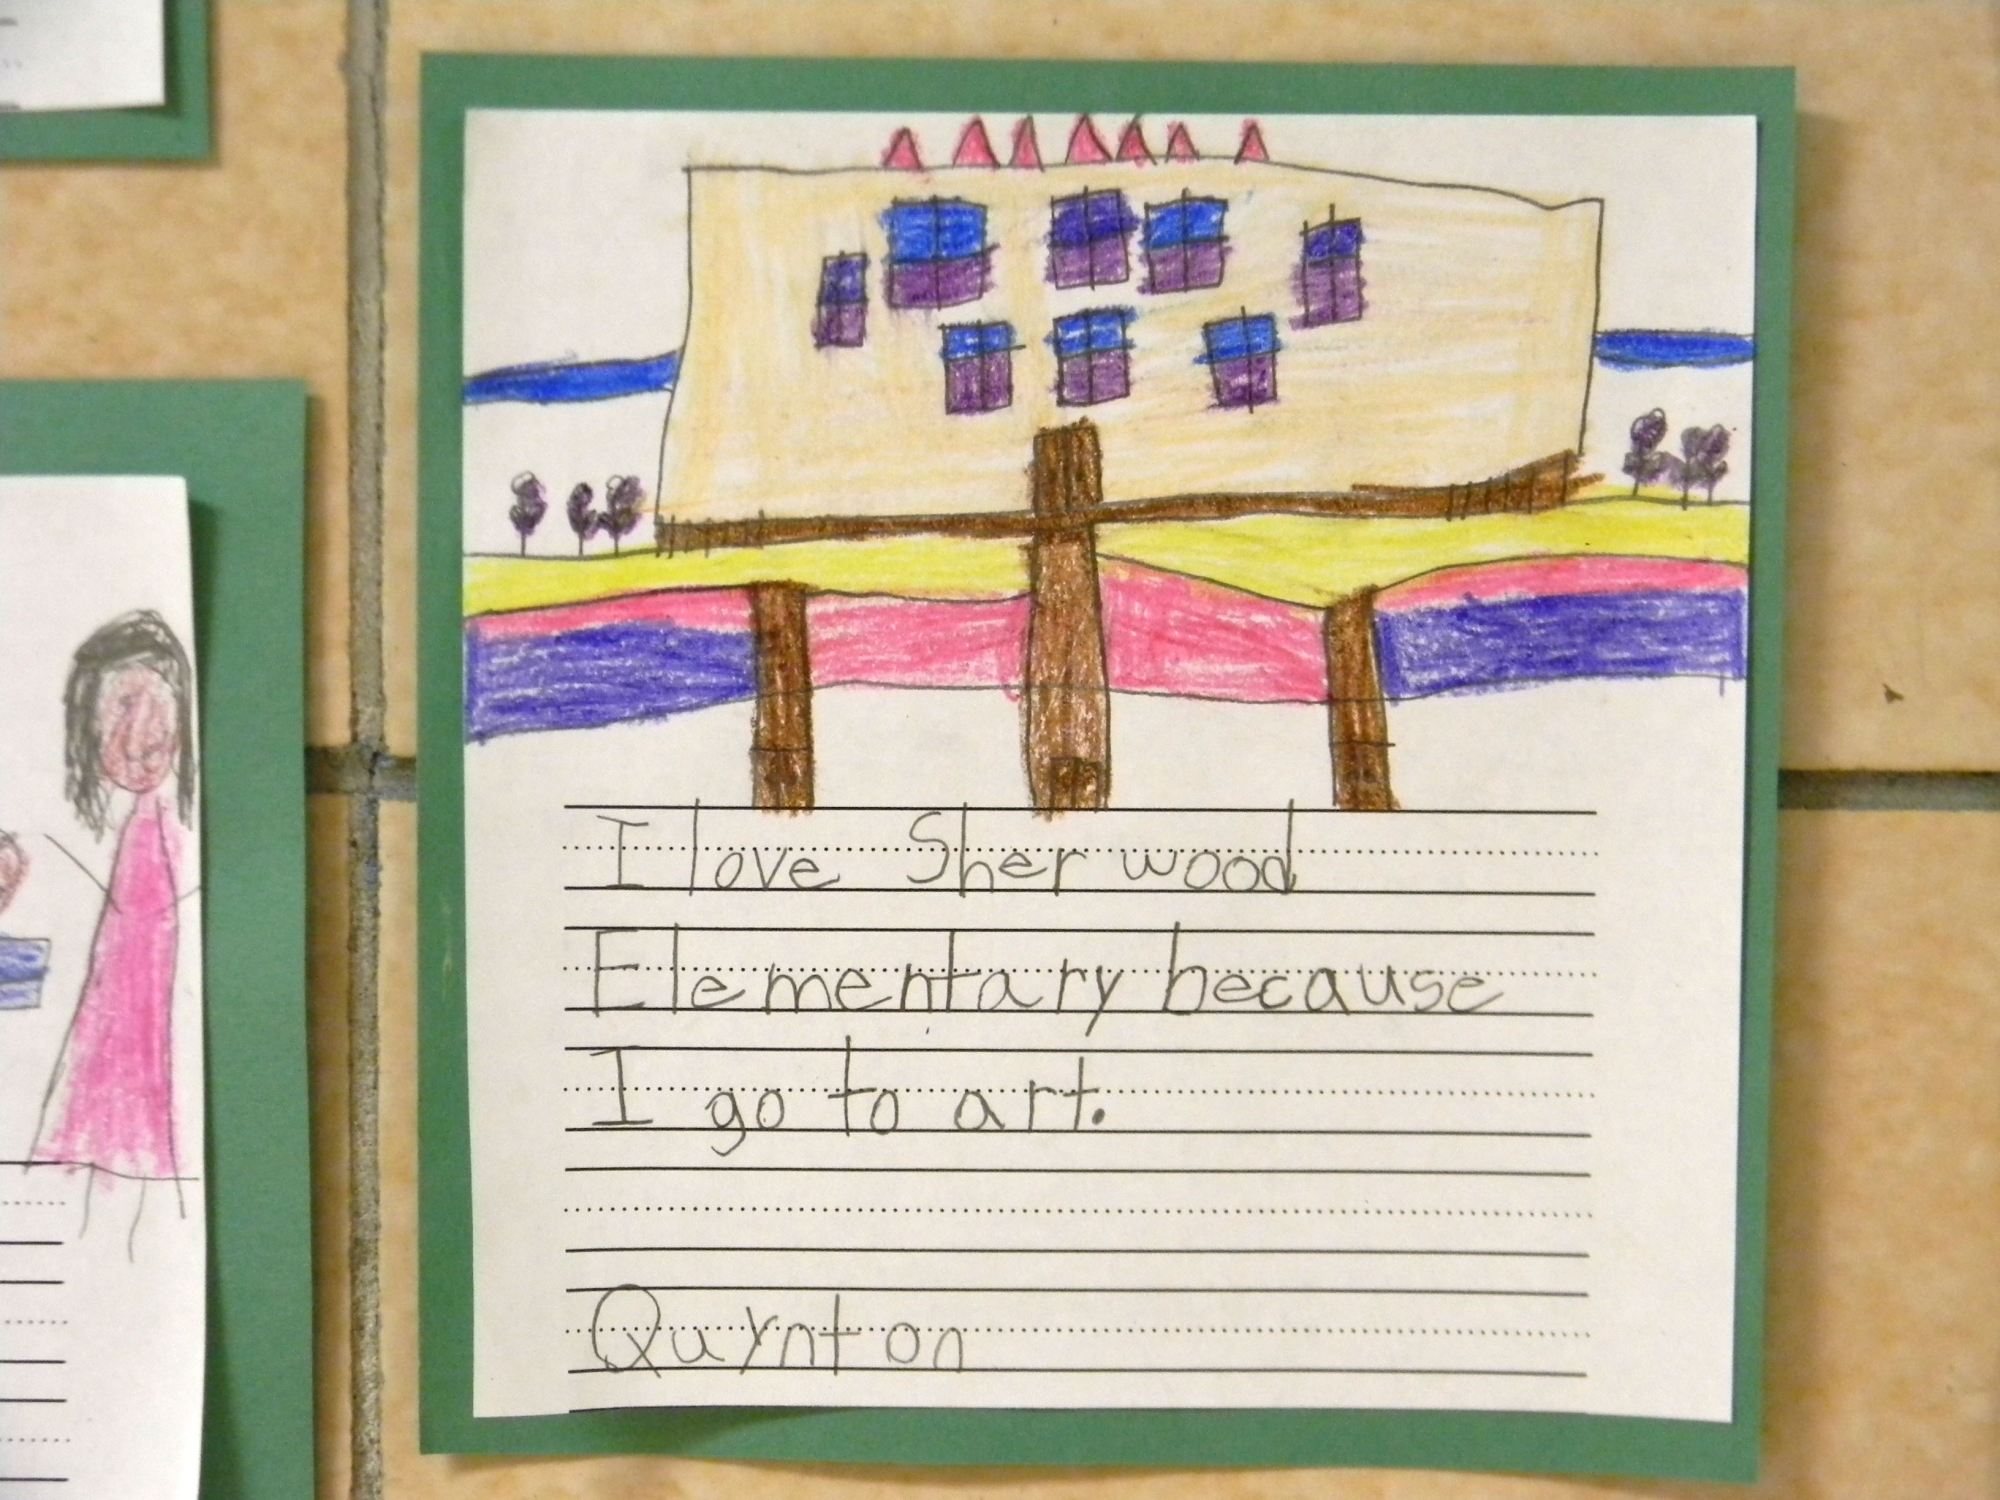 I love Sherwood
Elementary because
I go to art.
Quynton